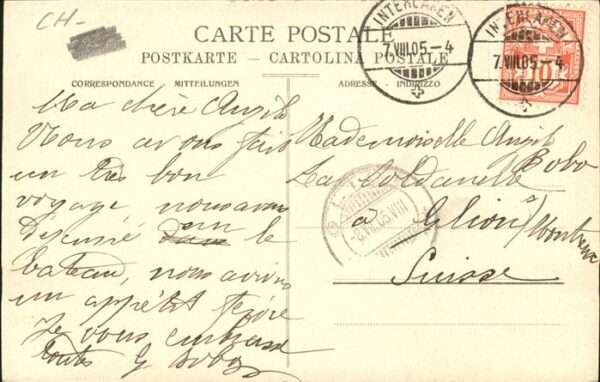 CH-
CARTE POSTALE
POSTKARTE – CARTOLINA POSTALE
CORRESPONDANCE MITTEILUNGEN
ADRESSE INDIRIZZO
INTERLAKEN
7.VIII.05–4
INTERLAKEN
7.VIII.05–4
10
Ma chere
Nous avons fait
un très bon
voyage nous avons
le
bateau, nous avions
un appétit
Je vous embrasse
toutes G Bobo
Mademoiselle
Bobo
La Soldanelle
à Glion s/Montreux
Suisse